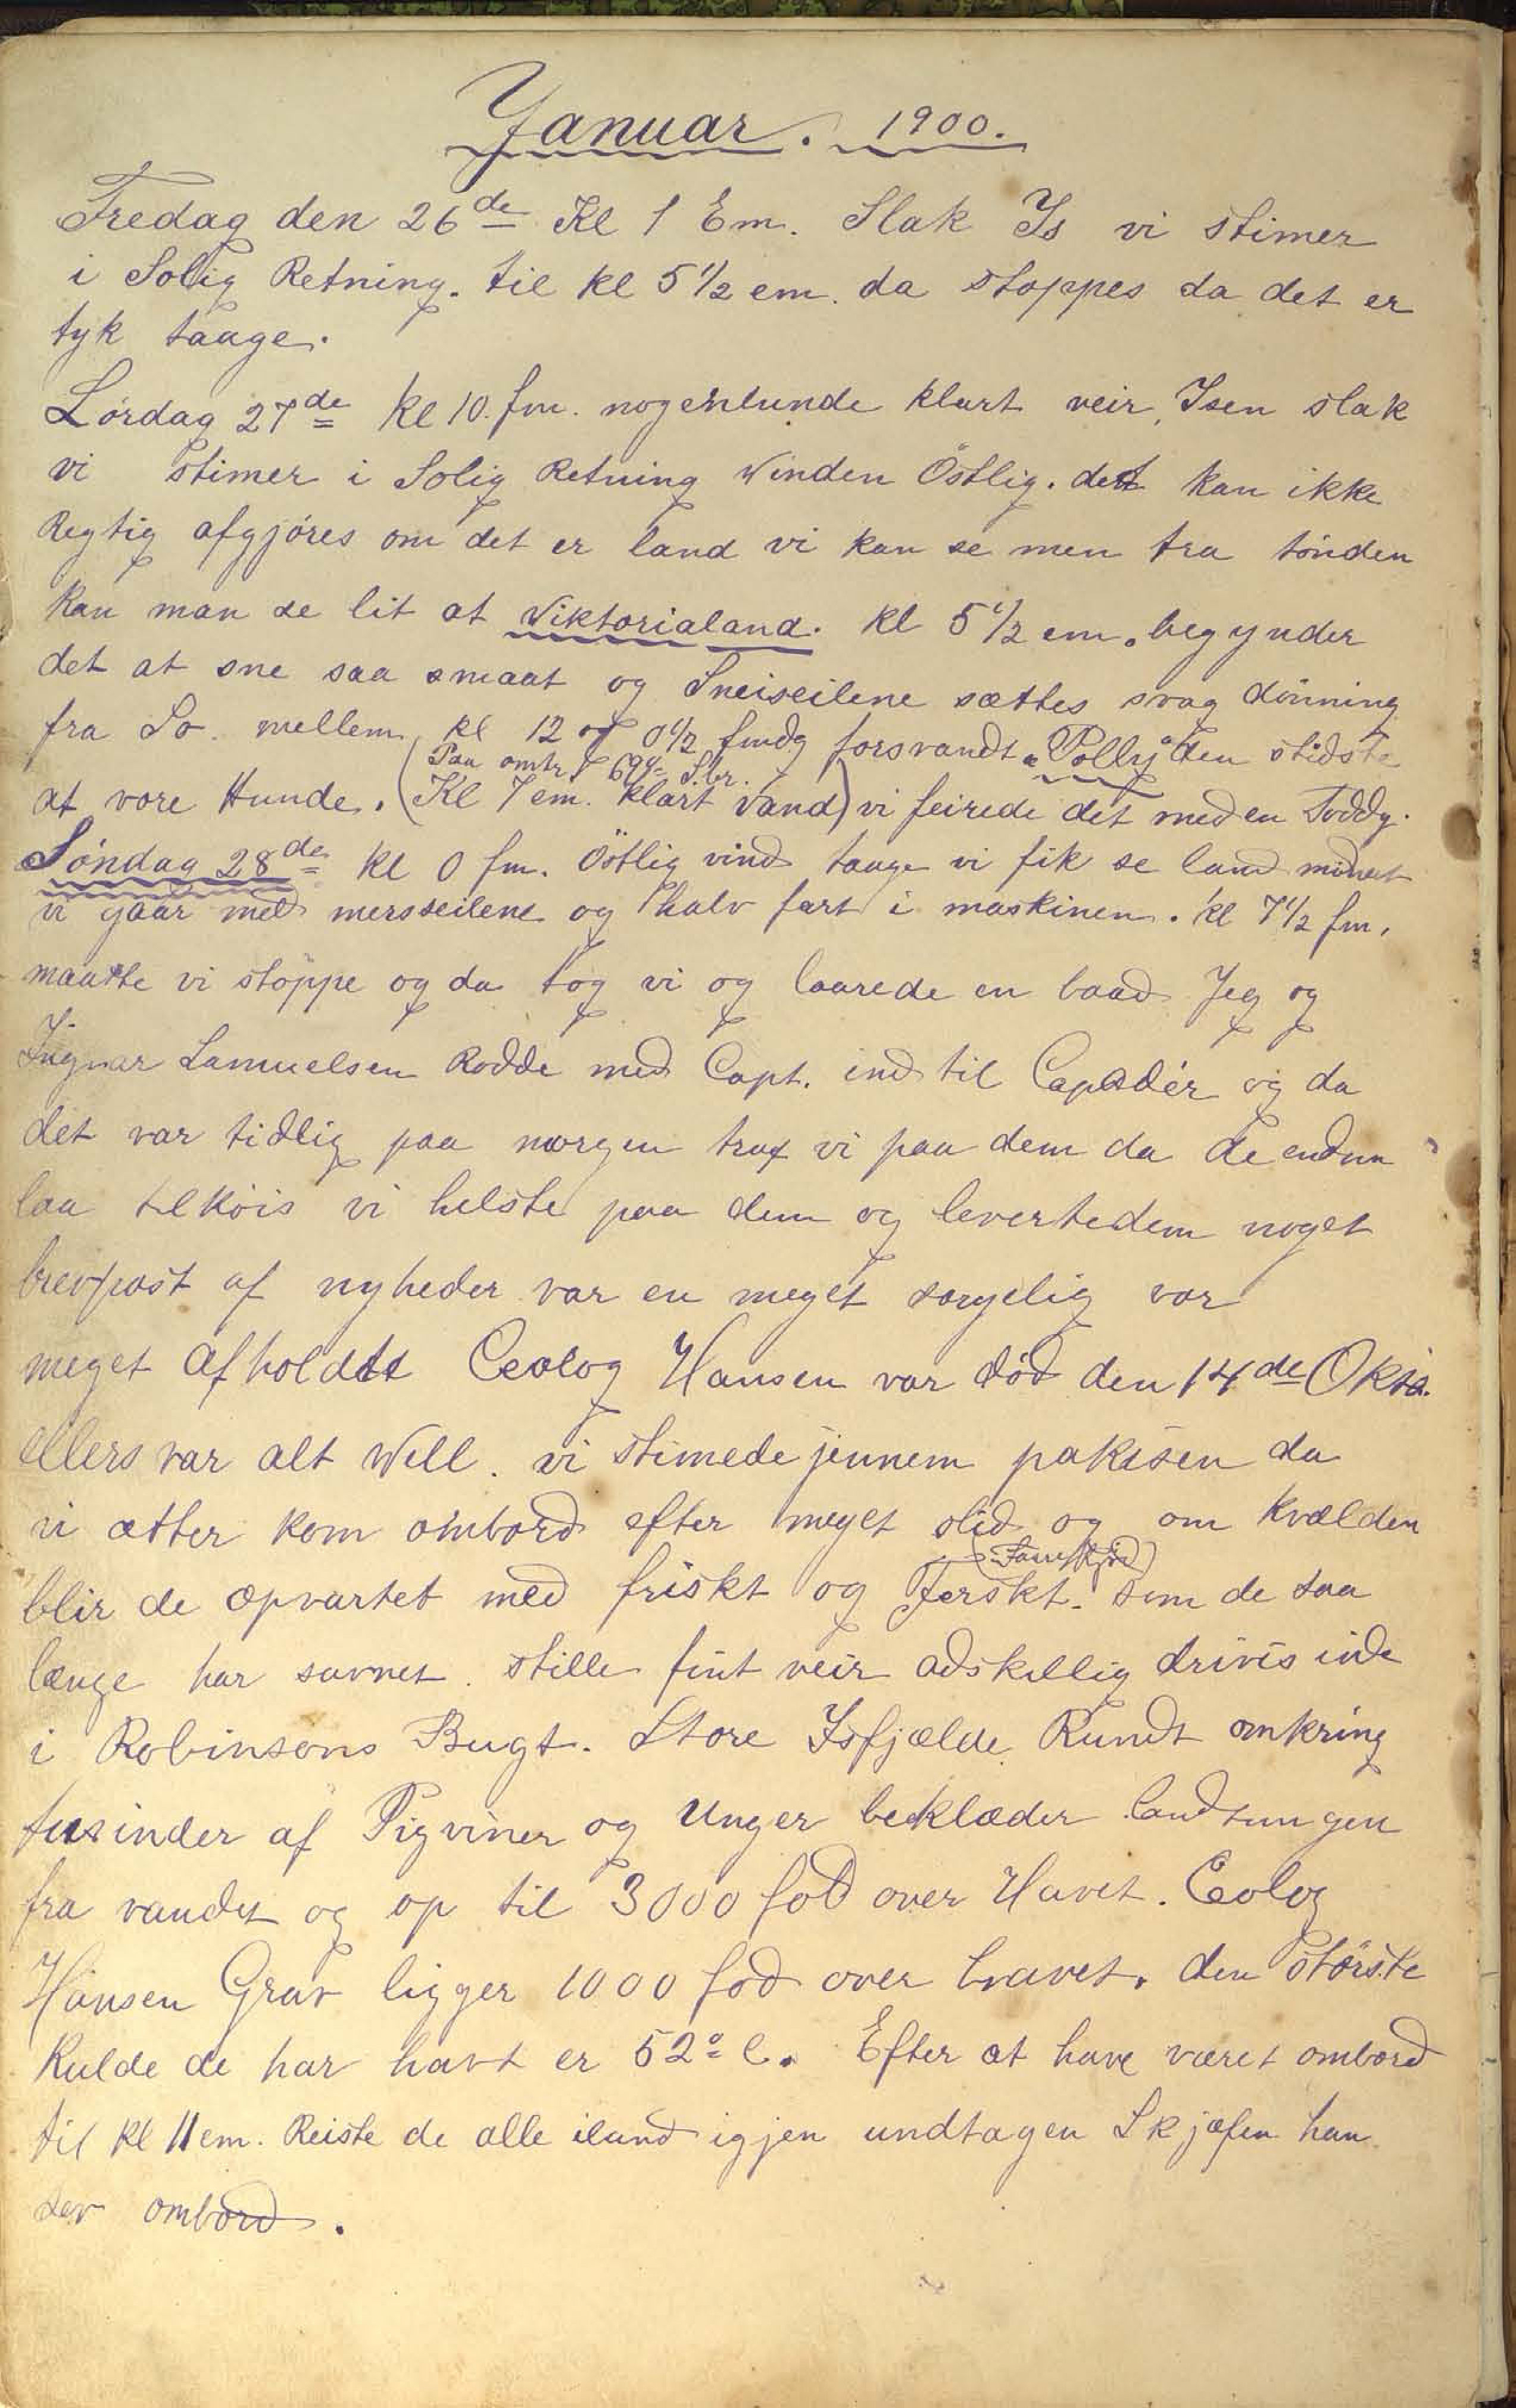 Januar. 1900.
Fredag den 26de Kl 1 Em. Slak Is vi stimer
i Solig Retning. til kl 5 1/2 em. da stoppes da det er
tyk taage.
Lørdag 27de Kl 10. fm. nogenlunde klart veir, Isen slak
vi stimer i Solig Retning Winden Østlig. det kan ikke
Regtig afgjøres om det er land vi kan se men fra tønden
kan man se lit af Viktorialand. kl 5 1/2 em. begynder
det at sne saa smaat og Sneiseilene sættes svag dønning
fra So. mellem kl 12 og 0 1/2 fmdg forsvandt "Polly" den sidste
(Paa omtr 69° S.br.
af vore Hunde. (Kl 7 em. klart vand) vi feirede det med en Toddy.
Søndag 28de Kl 0 fm. Østlig vind taage vi fik se land
vi gaar med mersseilene og halv fart i maskinen. kl 7 1/2 fm.
maatte vi stoppe og da tog vi og laarede en baad Jeg og
Ingvar Samuelsen Rodde med Capt. ind til Capadér og da
det var tidlig paa morgen traf vi paa dem da de endnu
laa tilkøis vi helste paa dem og levertedem noget
brevpost af nyheder var en meget sørgelig vor
meget afholdte Ceolog Hansen var død den 14de Okto.
ellers var alt Well. vi stimede jennem pakisen da
vi atter kom ombord efter meget slid og om kvælden
blir de opvartet med friskt og Ferskt. som de saa
længe har savnet. stille fint veir adskillig drivis inde
i Robinsons Bugt. Store Isfjælde Rundt omkring
tusinder af Pigviner og Unger beklæder landtungen
fra vandet og op til 3000 fod over Havet. Ceolog
Hansen Grav ligger 1000 fod over havet. den største
Kulde de har havt er 52° C. Efter at have været ombord
til kl 11 em. Reiste de alle iland igjen undtagen Skjæfen han
sov ombord.